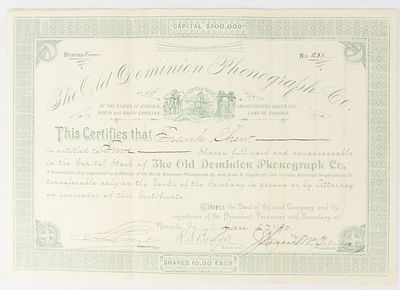 CAPITAL $300,000
Shares
No. 281
The Old Dominion Phonograph Co.
OF THE STATES OF VIRGINIA,
NORTH and SOUTH CAROLINA
INCORPORATED UNDER THE
LAWS OF VIRGINIA.
This Certifies that Frank
is entitled to Shares full paid and nonassessable
in the Capital Stock of The Old Dominion Phonograph Co.
A Corporation duly organized by authority of the North American Phonograph Co. and Jesse H. Lippincott, sole licensee American Graphophone Co.
transferable only on the Books of the Company in person or by Attorney
on surrender of this Certificate.
Witness the Seal of the said Company and the
signatures of the President, Treasurer and Secretary at
Roanoke Va. Jan
SHARES 10.00 EACH